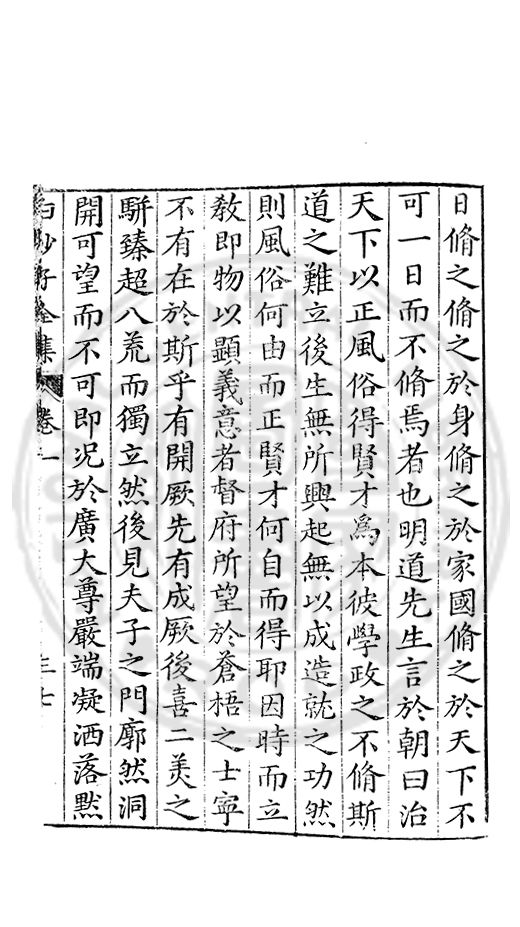 日脩之脩之於身脩之於家國脩之於天下不
可一日而不脩焉者也明道先生言於朝曰治
天下以正風俗得賢才爲本彼學政之不脩斯
道之難立後生無所興起無以成造就之功然
則風俗何由而正賢才何自而得耶因時而立
敎即物以顯義意者督府所望於蒼梧之士寜
不有在於斯乎有開厥先有成厥後喜二美之
駢臻超八荒而獨立然後見夫子之門廓然洞
開可望而不可即况於廣大尊嚴端凝洒落黙
白沙子全集 卷一 三七